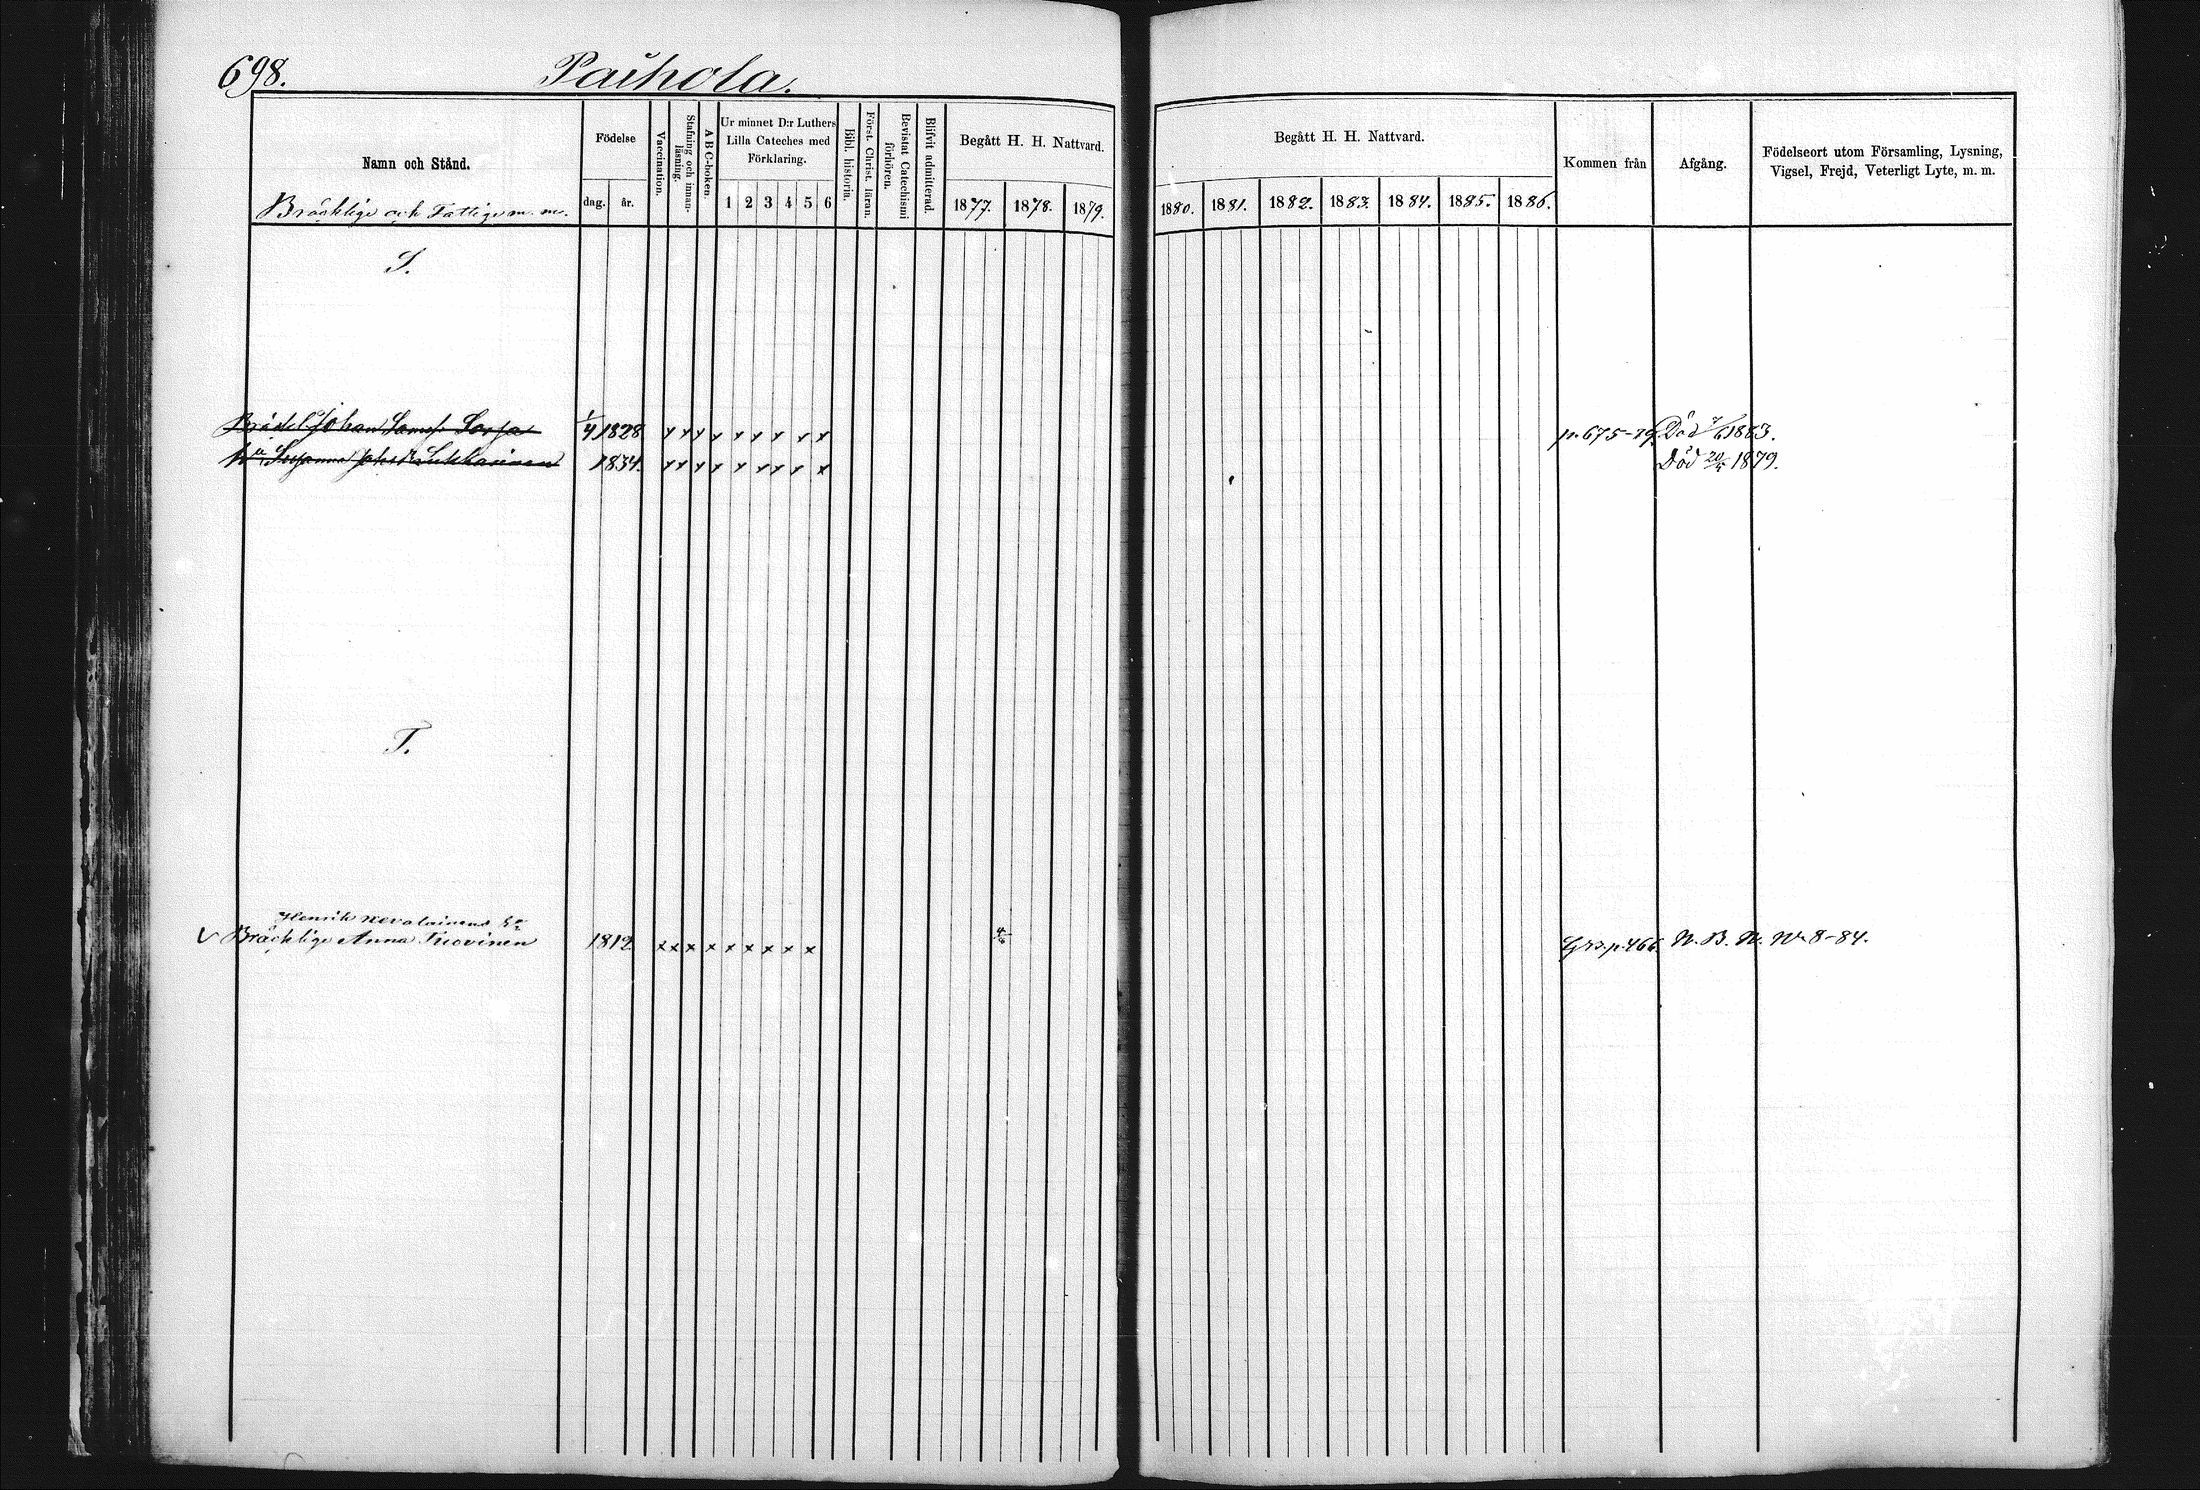 698. Paihola.
Namn och Stånd.
Bräcklige och Fattige m. m.
Födelse
dag. år.
Vaccination.
Stafning och innanläsning.
ABC-boken
Ur minnet D:r Luthers
Lilla Cateches med
Förklaring.
1 2 3 4 5 6
Bibl. historia.
Först. Christ. läran.
Bevistat Catechismi förhören.
Blifvit admitterad.
Begått H. H. Nattvard.
1877. 1878. 1879.
Begått H. H. Nattvard.
1880. 1881. 1882. 1883. 1884. 1885. 1886.
Kommen från
Afgång.
Födelseort utom Församling, Lysning,
Vigsel, Frejd, Veterligt Lyte, m. m.
S.
Johan Sorsa 1/4 1828 x x x x x x x x x p. 675-79. Död 7/6 1883.
Susanna 1834. x x x x x x x x x Död 1879.
T.
Henrik Nevalainens
V Bräcklige Anna Tuovinen 1812 x x x x x x x x x p. 466. N. B. N. No 8-84.